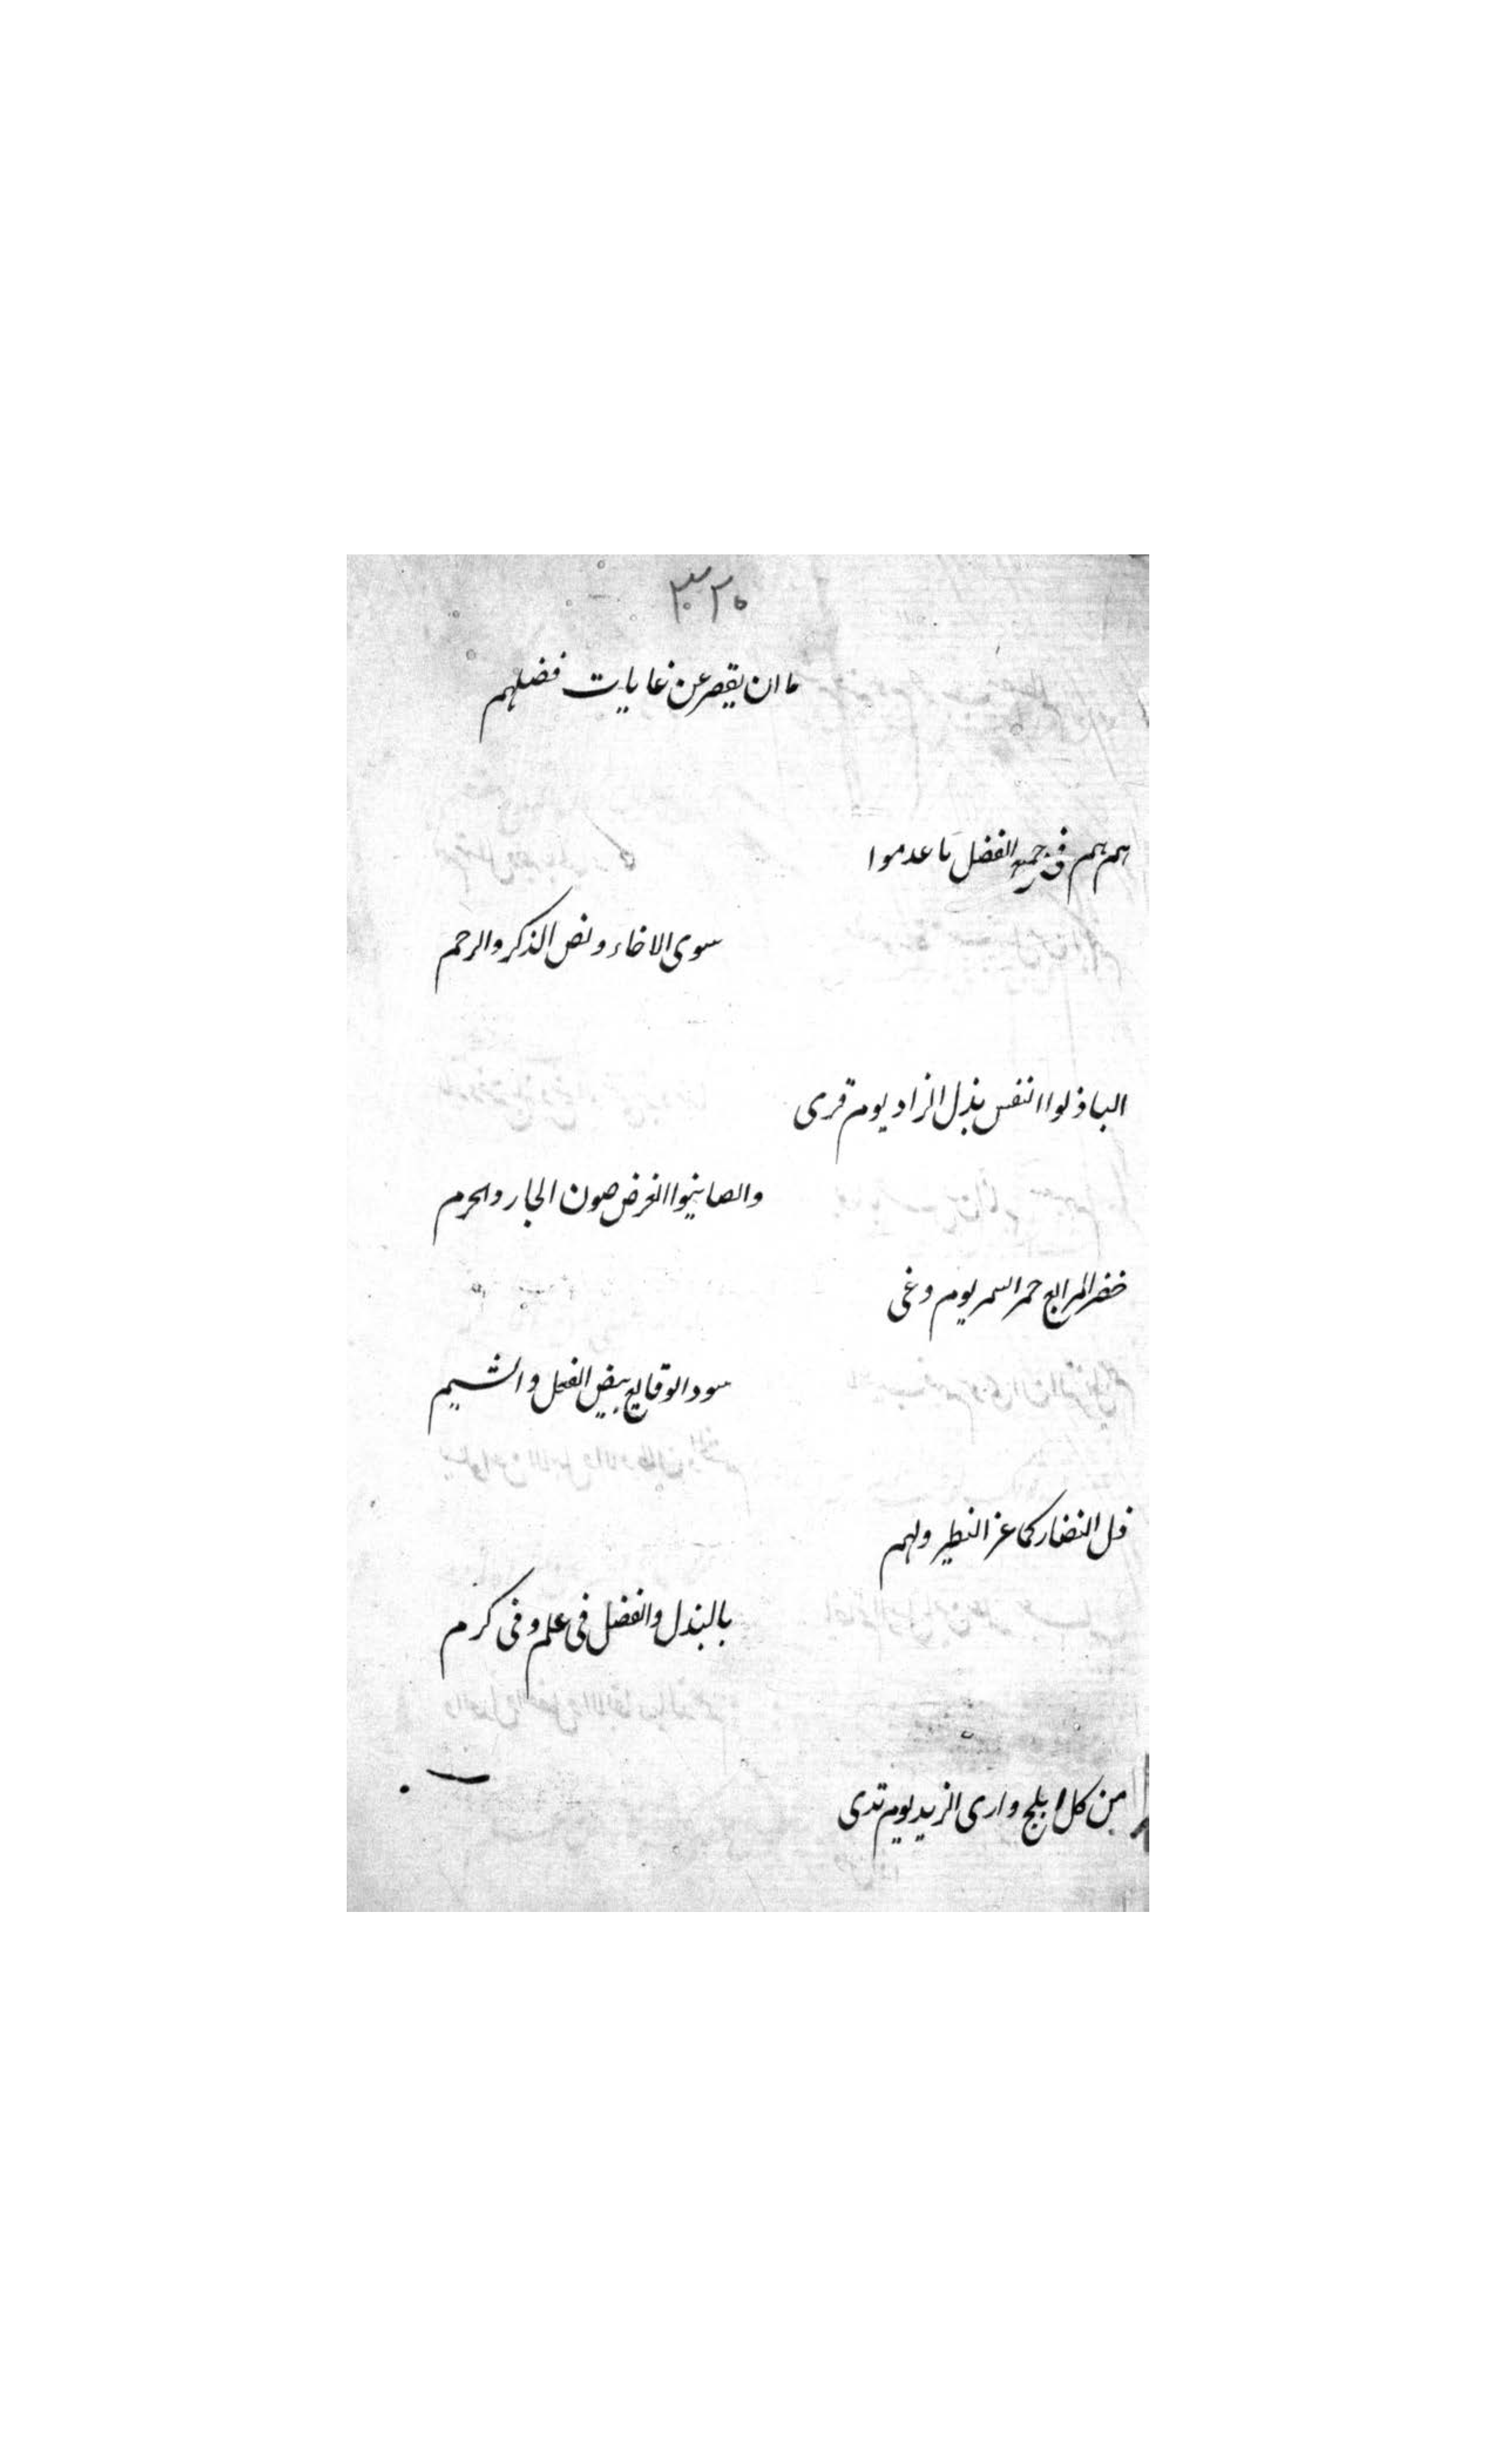 ما ان يقصر عن غايات فضلهم
هم هم فى جميع الفضل ما عدموا
سوى الاخاء ونص الذكر والرحم
الباذلوا النفس بذل الزاد يوم قرى
والصاينوا العرض صون الجار والحرم
خضر المرابع حمر السمر يوم وغى
سود الوقايع بيض الفعل والشيم
ذل النضار كما عز النظير لهم
بالبذل والفضل فى علم وفى كرم
من كل ابلج وارى الزند يوم ندى